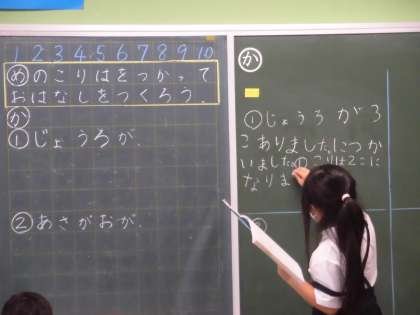 1 2 3 4 5 6 7 8 9 10
めのこりはをつかって
おはなしをつくろう。
か
①じょうろが、
②あさがおが、
か
①じょうろが3
こありました。1こつか
いました。のこりは2こに
なりま